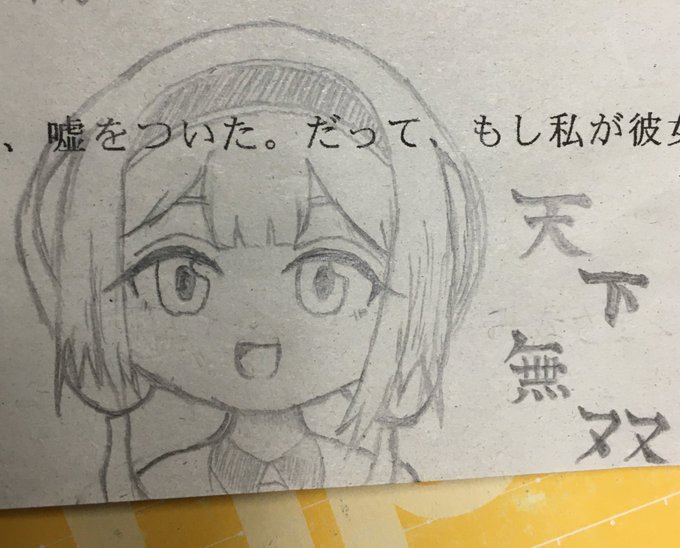 、嘘をついた。だって、もし私が彼女
天下無双